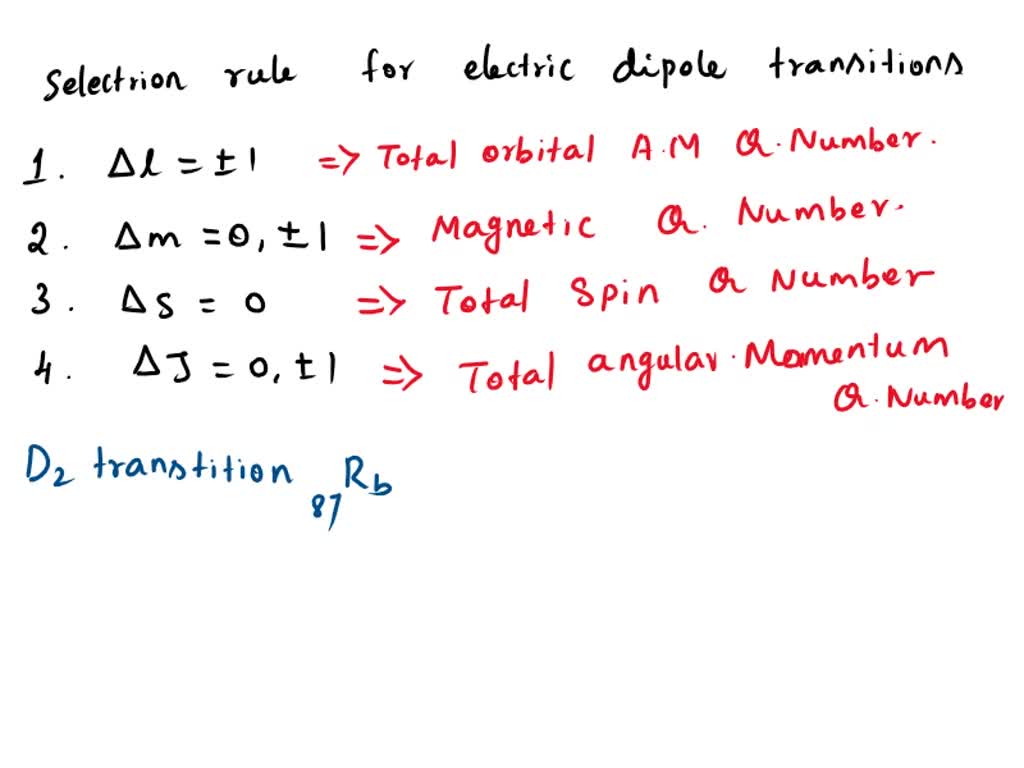 Selectrion rule for electric dipole transitions
1. Δl = ±1 => Total orbital A.M Q. Number.
2. Δm = 0, ±1 => Magnetic Q. Number.
3. Δs = 0 => Total Spin Q Number
4. ΔJ = 0, ±1 => Total angular. Momentum
Q. Number
D2 transtition 87Rb